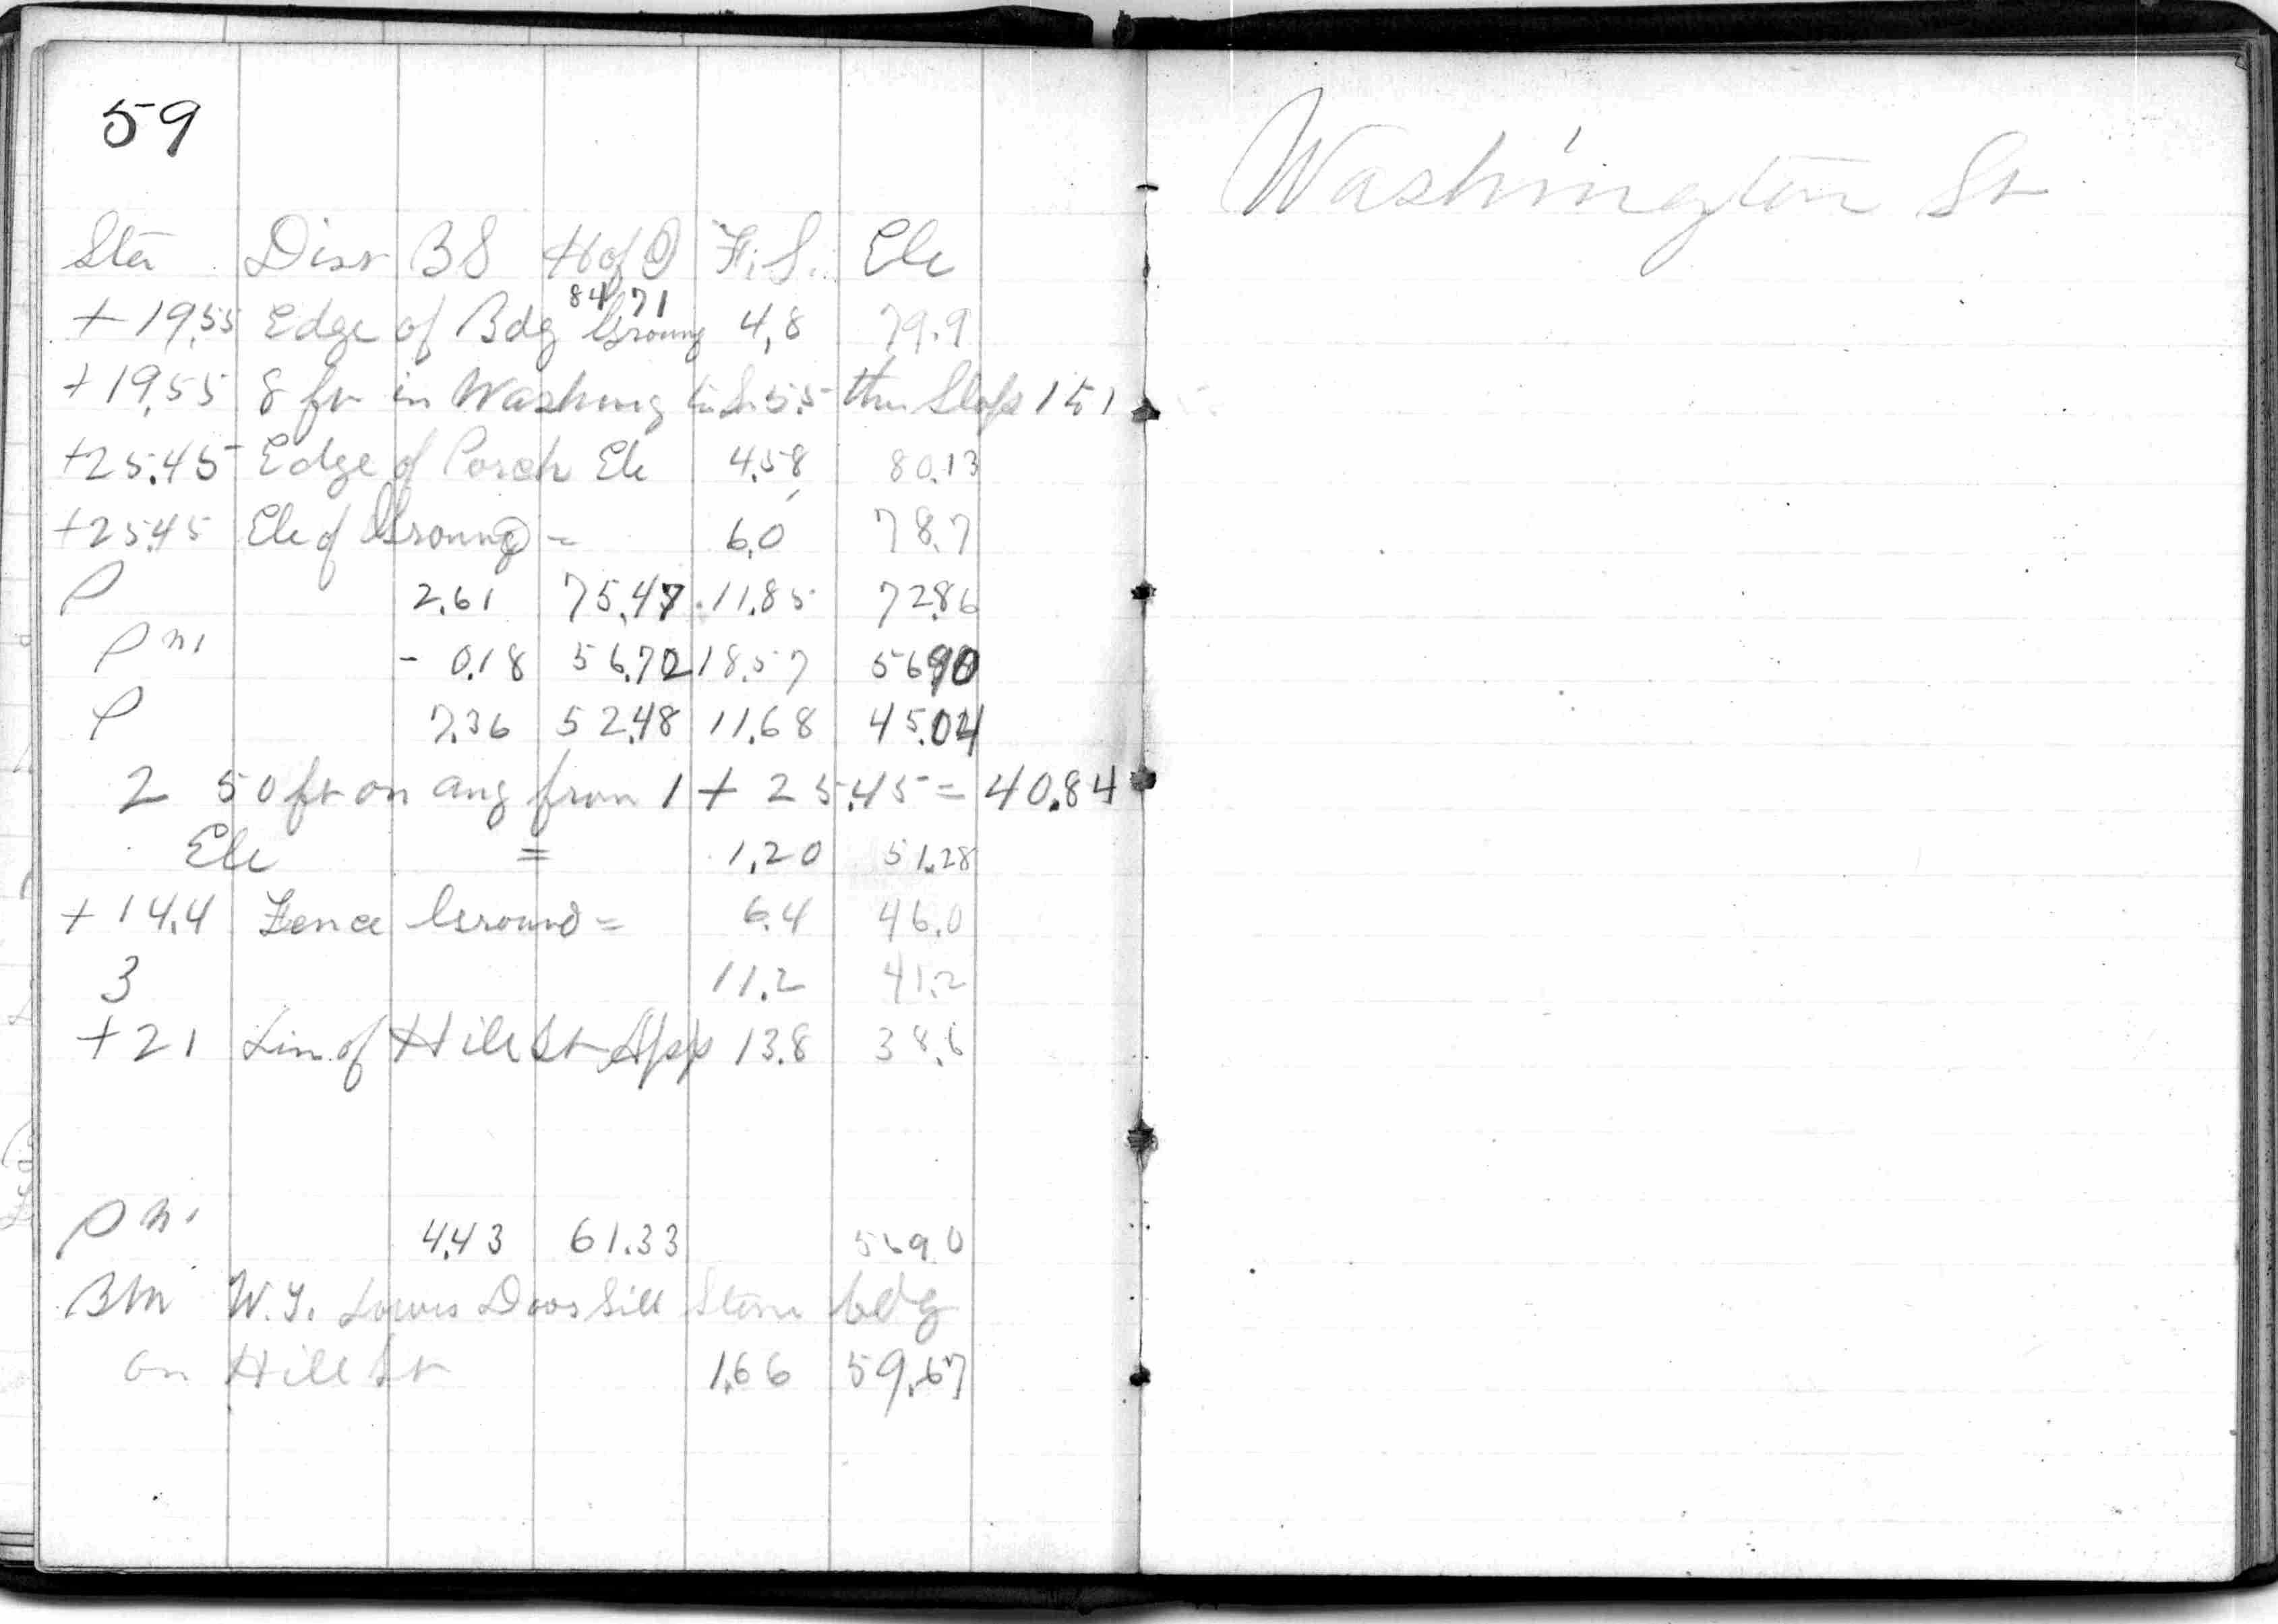 59
Washington St
Sta Dist BS H of I F.S. Ele
84.71
+19.55 Edge of Bdg Ground 4.8 79.9
+19.55 8 ft in Washing ton St 5.5 then Slops 1 to 1
+25.45 Edge of Porch Ele 4.58 80.13
+25.45 Ele of Ground = 6.0 78.7
P 2.61 75.47 11.85 72.86
P m - 0.18 56.72 18.57 56.90
P 7.36 52.48 11.68 45.04
2 50 ft on ang from 1 + 25.45 = 40.84
Ele = 1.20 51.28
+14.4 Fence Ground = 6.4 46.0
3 11.2 41.2
+21 Lin of Hill St App 13.8 38.6
P m 4.43 61.33 56.90
BM W. Door Sill Stone bdg
on Hill St 1.66 59.67